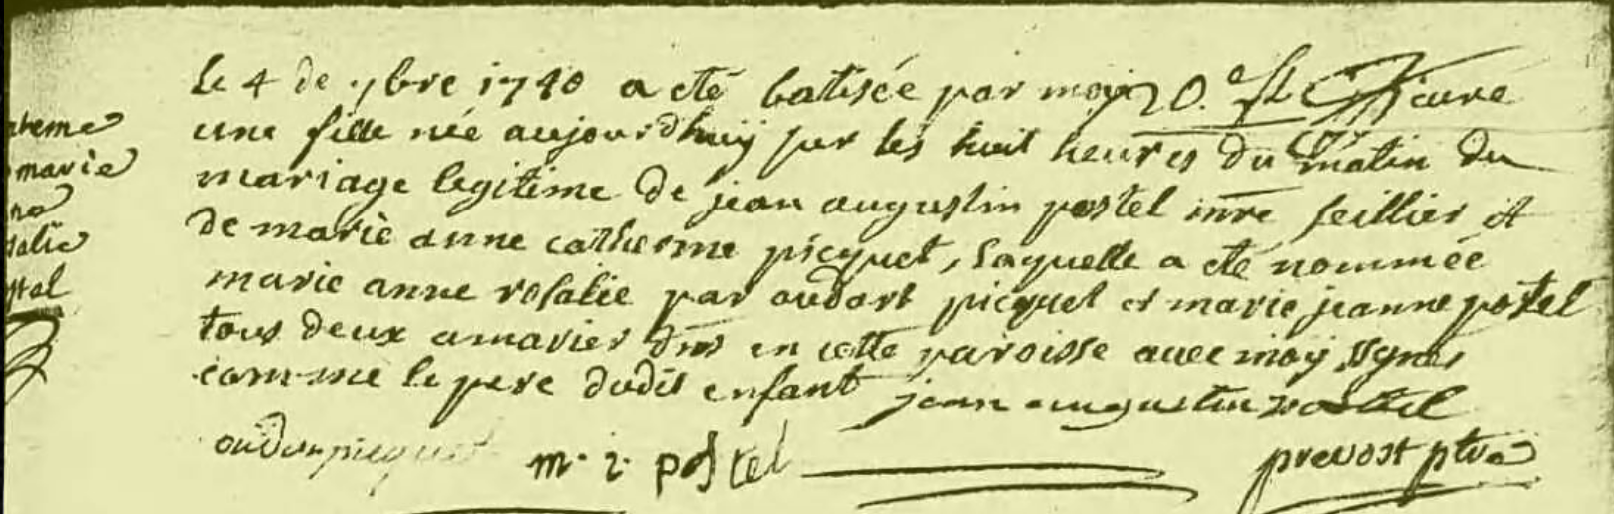 le 4 de 7bre 1740 a eté batisée par moy curé
une fille née aujourdhuy sur les huit heures du matin du
mariage legitime de jean augustin postel mre feillier et
de marie anne catherine picquet, laquelle a eté nommée
marie anne rosalie par oudart picquet et marie jeanne postel
tous deux a marier dms en cette paroisse avec moy signés
comme le pere dudit enfant jean augustin postel
oudar picquet m. i. postel prevost ptre
marie